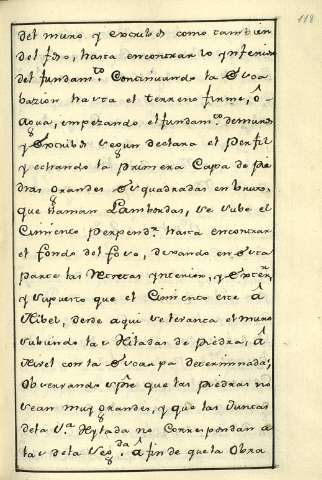 118
del muro y estribos como tambien
del foso, hasta encontrar lo ynferior
del fundam.to Continuando la Esca
bazion hasta el terreno firme, ô
Agua, empezando el fundam.to demuros
y Estribos segun declara el Perfil
y echando la primera Capa de pie
dras grandes Esquadradas en bruto,
que llaman Lambordas, se sube el
Cimiento perpend.r hasta encontrar
el fondo del foso, dexando en Esta
parte las Retretas ynterior, y Exter.r
y supuesto que el Cimiento este â
Nibel, desde aqui se levanta el muro
subiendo las Hiladas de piedra, â
Nivel con la Escarpa determinada;
Observando spre que las piedras no
sean muy grandes, y que las Juntas
dela 1.a Hylada no Correspondan a
las dela seg.da â fin de que la Obra